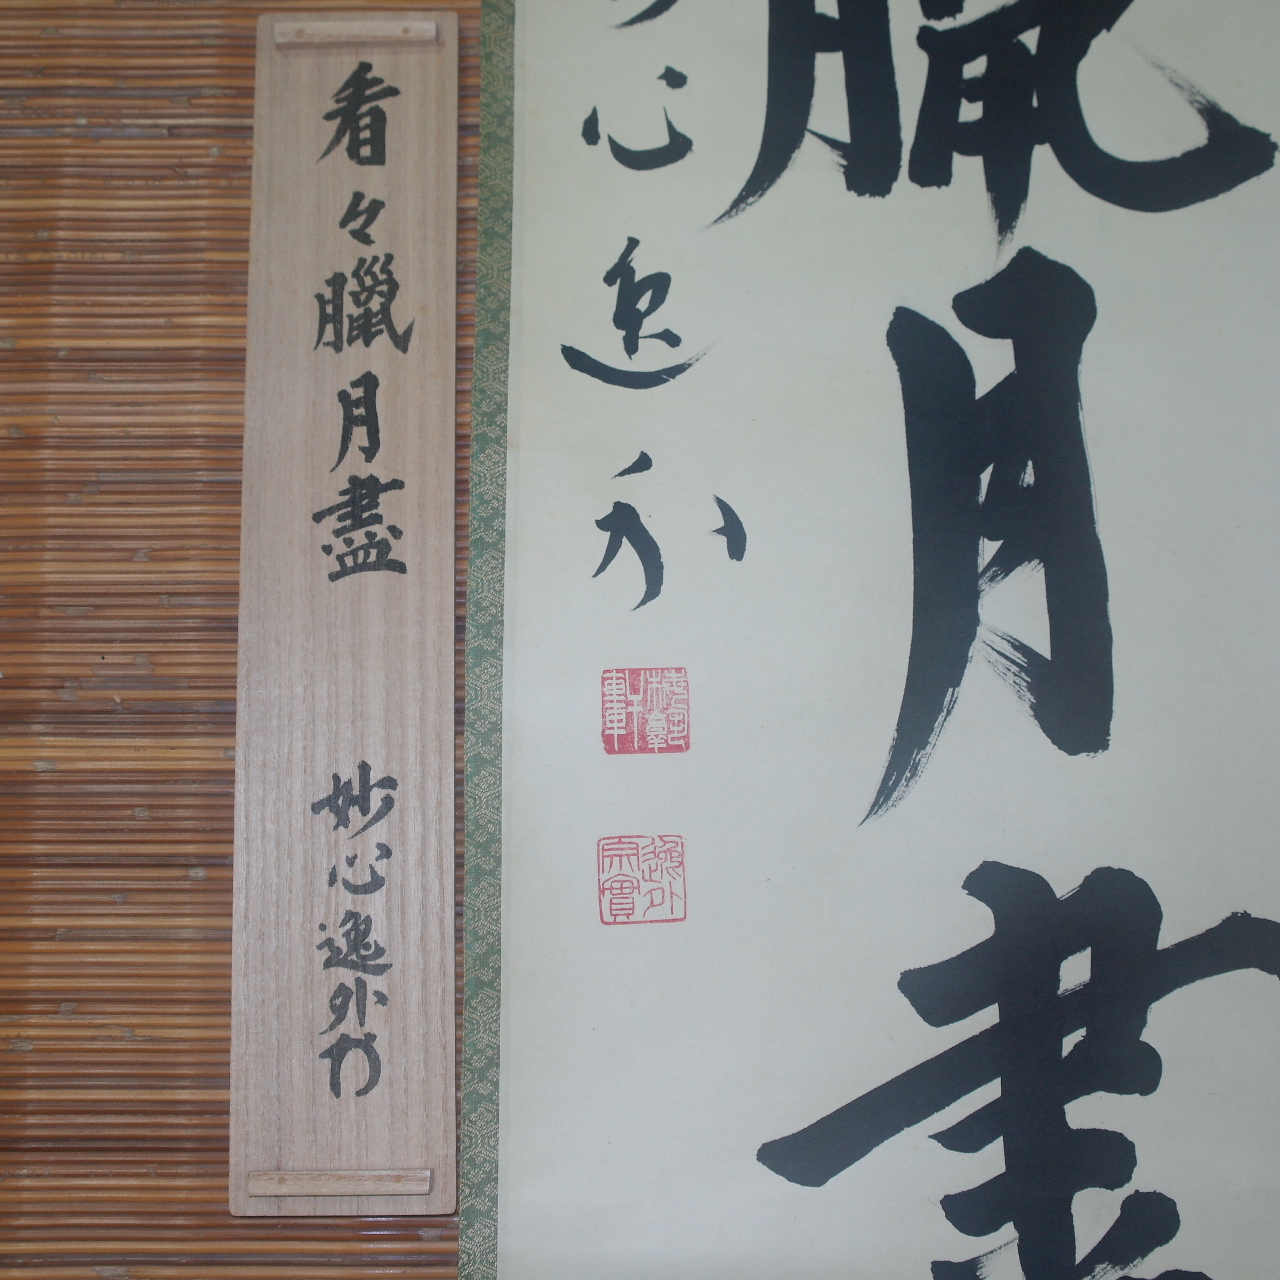 臘月盡
心逸外
軒
逸外
宗實
看々臘月盡
妙心逸外